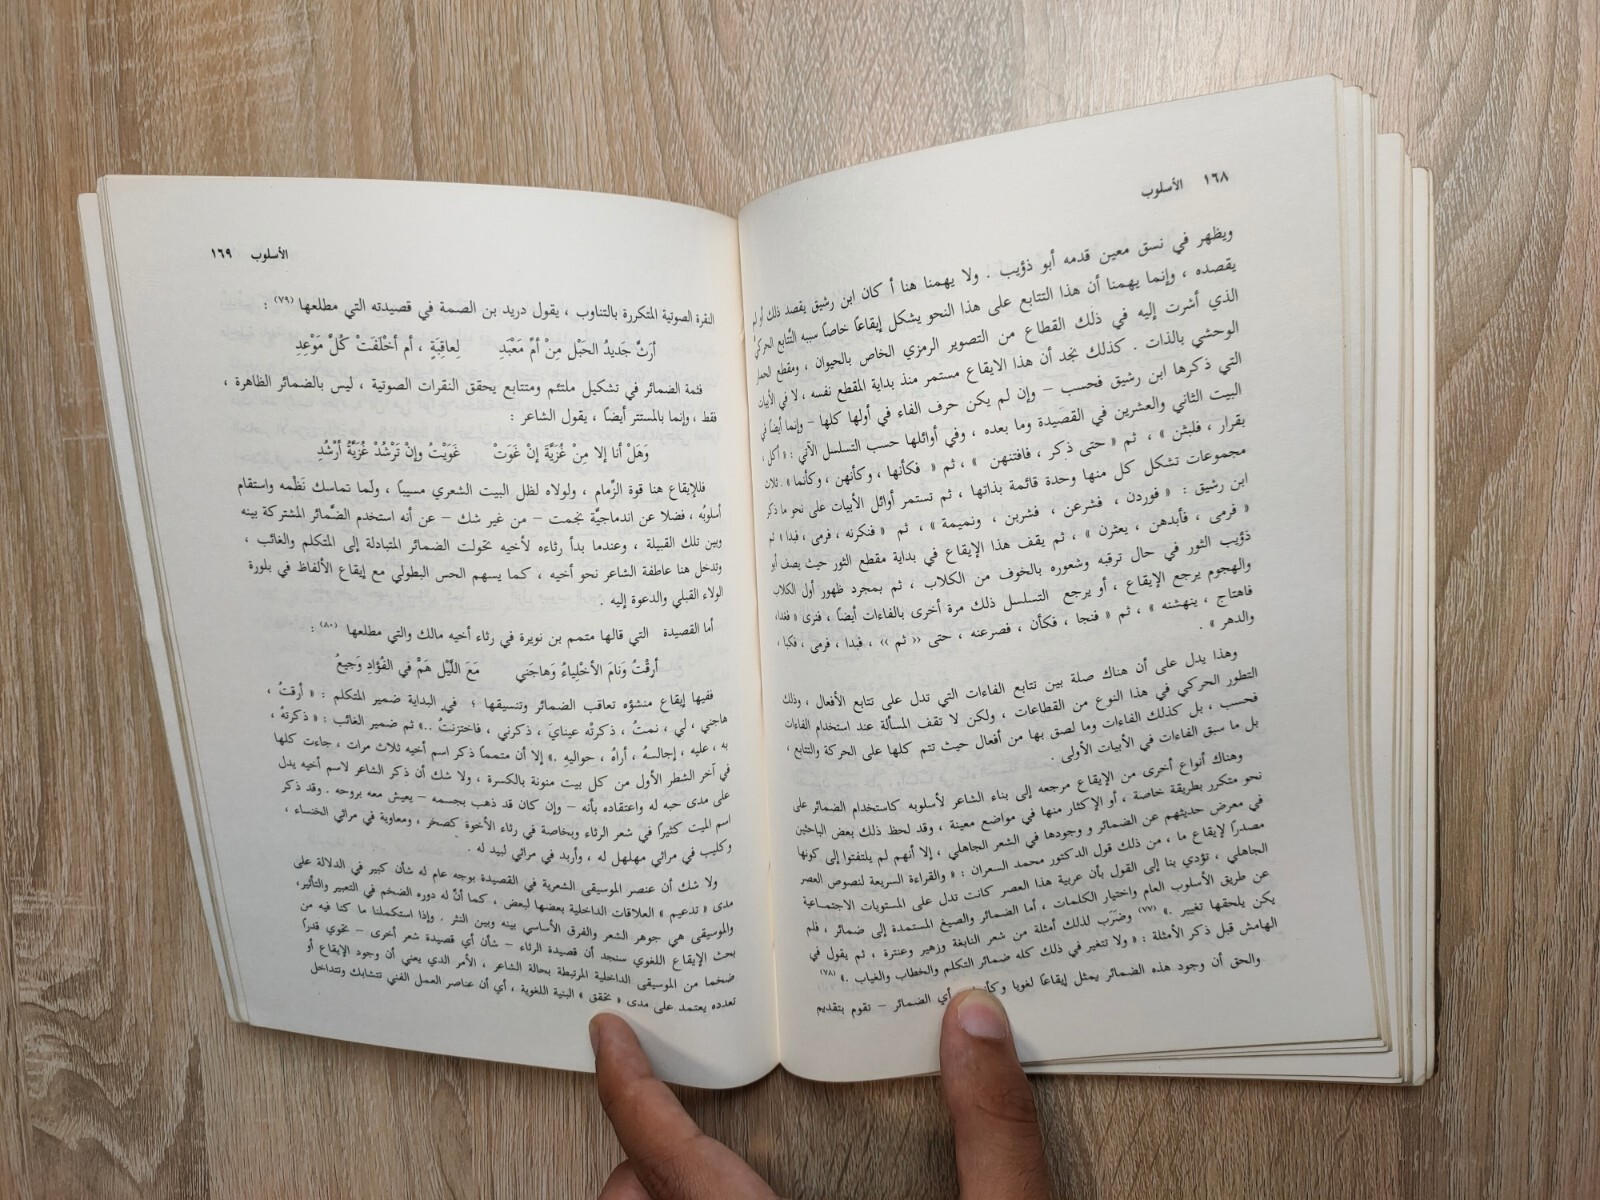 ١٦٨ الأسلوب
ويظهر في نسق معين قدمه أبو ذؤيب . ولا يهمنا هنا أ كان ابن رشيق يقصد ذلك أو لم
يقصده ، وإنما يهمنا أن هذا التتابع على هذا النحو يشكل إيقاعًا خاصًا سببه التتابع الحركي
الذي أشرت إليه في ذلك القطاع من التصوير الرمزي الخاص بالحيوان ، ومقطع الحمار
الوحشي بالذات . كذلك نجد أن هذا الايقاع مستمر منذ بداية المقطع نفسه ، لا في الأبيات
التي ذكرها ابن رشيق فحسب – وإن لم يكن حرف الفاء في أولها كلها – وإنما أيضًا في
البيت الثاني والعشرين في القصيدة وما بعده ، وفي أوائلها حسب التسلسل الآتي : « أكل ،
بقرار ، فلبثن » ، ثم « حتى ذكر ، فافتنهن » ، ثم « فكأنها ، وكأنهن ، وكأنما » . ثلاث
مجموعات تشكل كل منها وحدة قائمة بذاتها ، ثم تستمر أوائل الأبيات على نحو ما ذكر
ابن رشيق : « فوردن ، فشرعن ، فشربن ، ونميمة » ، ثم « فنكرنه ، فرمى ، فبدا » ثم
« فرمى ، فأبدهن ، يعثرن » ، ثم يقف هذا الإيقاع في بداية مقطع الثور حيث يصف أبو
ذؤيب الثور في حال ترقبه وشعوره بالخوف من الكلاب ، ثم بمجرد ظهور أول الكلاب
والهجوم يرجع الإيقاع ، أو يرجع التسلسل ذلك مرة أخرى بالفاءات أيضًا ، فنرى « فغدا،
فاهتاج ، ينهشنه » ، ثم « فنجا ، فكأن ، فصرعنه ، حتى « ثم » ، فبدا ، فرمى ، فكبا ،
والدهر » .
وهذا يدل على أن هناك صلة بين تتابع الفاءات التي تدل على تتابع الأفعال ، وذلك
التطور الحركي في هذا النوع من القطاعات ، ولكن لا تقف المسألة عند استخدام الفاءات
فحسب ، بل كذلك الفاءات وما لصق بها من أفعال حيث تتم كلها على الحركة والتتابع ،
بل ما سبق الفاءات في الأبيات الأولى .
وهناك أنواع أخرى من الإيقاع مرجعه إلى بناء الشاعر لأسلوبه كاستخدام الضمائر على
نحو متكرر بطريقة خاصة ، أو الإكثار منها في مواضع معينة ، وقد لحظ ذلك بعض الباحثين
في معرض حديثهم عن الضمائر و وجودها في الشعر الجاهلي ، إلا أنهم لم يلتفتوا إلى كونها
مصدرًا لإيقاع ما ، من ذلك قول الدكتور محمد السعران : « والقراءة السريعة لنصوص العصر
الجاهلي ، تؤدي بنا إلى القول بأن عربية هذا العصر كانت تدل على المستويات الاجتماعية
عن طريق الأسلوب العام واختيار الكلمات ، أما الضمائر والصيغ المستمدة إلى ضمائر ، فلم
يكن يلحقها تغيير .» (٧٧) وضرَب لذلك أمثلة من شعر النابغة وزهير وعنترة ، ثم يقول في
الهامش قبل ذكر الأمثلة : « ولا تتغير في ذلك كله ضمائر التكلم والخطاب والغياب . » (٧٨)
والحق أن وجود هذه الضمائر يمثل إيقاعًا لغويا أي الضمائر – تقوم بتقديم
الأسلوب ١٦٩
النقرة الصوتية المتكررة بالتناوب ، يقول دريد بن الصمة في قصيدته التي مطلعها (٧٩) :
أرَثَّ جَديدُ الحَبْلِ مِنْ أمِّ مَعْبَدِ لِعاقِبَةٍ ، أم أخْلَفَتْ كُلَّ مَوْعِدِ
فثمة الضمائر في تشكيل ملتئم ومتتابع يحقق النقرات الصوتية ، ليس بالضمائر الظاهرة ،
فقط ، وإنما بالمستتر أيضًا ، يقول الشاعر :
وَهَلْ أنا إلا مِنْ غُزَيَّةَ إنْ غَوَتْ غَوَيْتُ وإنْ تَرْشُدْ غُزَيَّةُ أرْشُدِ
فللإيقاع هنا قوة الزِّمام ، ولولاه لظل البيت الشعري مسيبًا ، ولَما تماسك نَظْمه واستقام
أسلوبُه ، فضلا عن اندماجيَّة نجمت – من غير شك – عن أنه استخدم الضَّمائر المشتركة بينه
وبين تلك القبيلة ، وعندما بدأ رثاءه لأخيه تحولت الضمائر المتبادلة إلى المتكلم والغائب ،
وتدخل هنا عاطفة الشاعر نحو أخيه ، كما يسهم الحس البطولي مع إيقاع الألفاظ في بلورة
الولاء القبلي والدعوة إليه .
أما القصيدة التي قالها متمم بن نويرة في رثاء أخيه مالك والتي مطلعها (٨٠) :
أرِقْتُ وَنامَ الأخْلِياءُ وَهاجَني مَعَ اللَّيْلِ هَمٌّ في الفُؤَادِ وَجيعُ
ففيها إيقاع منشؤه تعاقب الضمائر وتنسيقها ؛ في البداية ضمير المتكلم : « أرقتُ ،
هاجني ، لي ، نمتُ ، ذكرتْه عينايَ ، ذكرني ، فاختزنتُ ..» ثم ضمير الغائب : « ذكرتهُ ،
به ، عليه ، إجالسهُ ، أراهُ ، حواليهِ .» إلا أن متممًا ذكر اسم أخيه ثلاث مرات ، جاءت كلها
في آخر الشطر الأول من كل بيت منونة بالكسرة ، ولا شك أن ذكر الشاعر لاسم أخيه يدل
على مدى حبه له واعتقاده بأنه – وإن كان قد ذهب بجسمه – يعيش معه بروحه . وقد ذكر
اسم الميت كثيرًا في شعر الرثاء وبخاصة في رثاء الأخوة كصخر ، ومعاوية في مراثي الخنساء ،
وكليب في مراثي مهلهل له ، وأربد في مراثي لبيد له .
ولا شك أن عنصر الموسيقى الشعرية في القصيدة بوجه عام له شأن كبير في الدلالة على
مدى « تدعيم » العلاقات الداخلية بعضها لبعض ، كما أنَّ له دوره الضخم في التعبير والتأثير،
والموسيقى هي جوهر الشعر والفرق الأساسي بينه وبين النثر . وإذا استكملنا ما كنا فيه من
بحث الإيقاع اللغوي سنجد أن قصيدة الرثاء – شأن أي قصيدة شعر أخرى – تحوي قدرًا
ضخما من الموسيقى الداخلية المرتبطة بحالة الشاعر ، الأمر الذي يعني أن وجود الإيقاع أو
تعدده يعتمد على مدى « تحقق » البنية اللغوية ، أي أن عناصر العمل الفني تتشابك وتتداخل